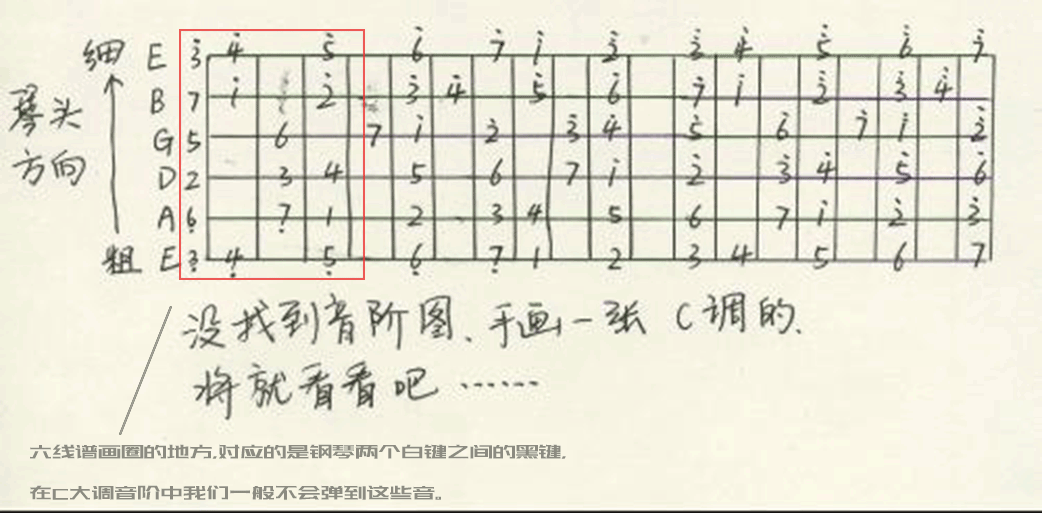 细 E 3 4 5 6 7 1 2 3 4 5 6 7
B 7 1 2 3 4 5 6 7 1 2 3 4
琴头 G 5 6 7 1 2 3 4 5 6 7 1 2
方向 D 2 3 4 5 6 7 1 2 3 4 5 6
A 6 7 1 2 3 4 5 6 7 1 2 3
粗 E 3 4 5 6 7 1 2 3 4 5 6 7
没找到音阶图、手画一张 C调的、
将就看看吧 ······
六线谱画圈的地方,对应的是钢琴两个白键之间的黑键,
在C大调音阶中我们一般不会弹到这些音。